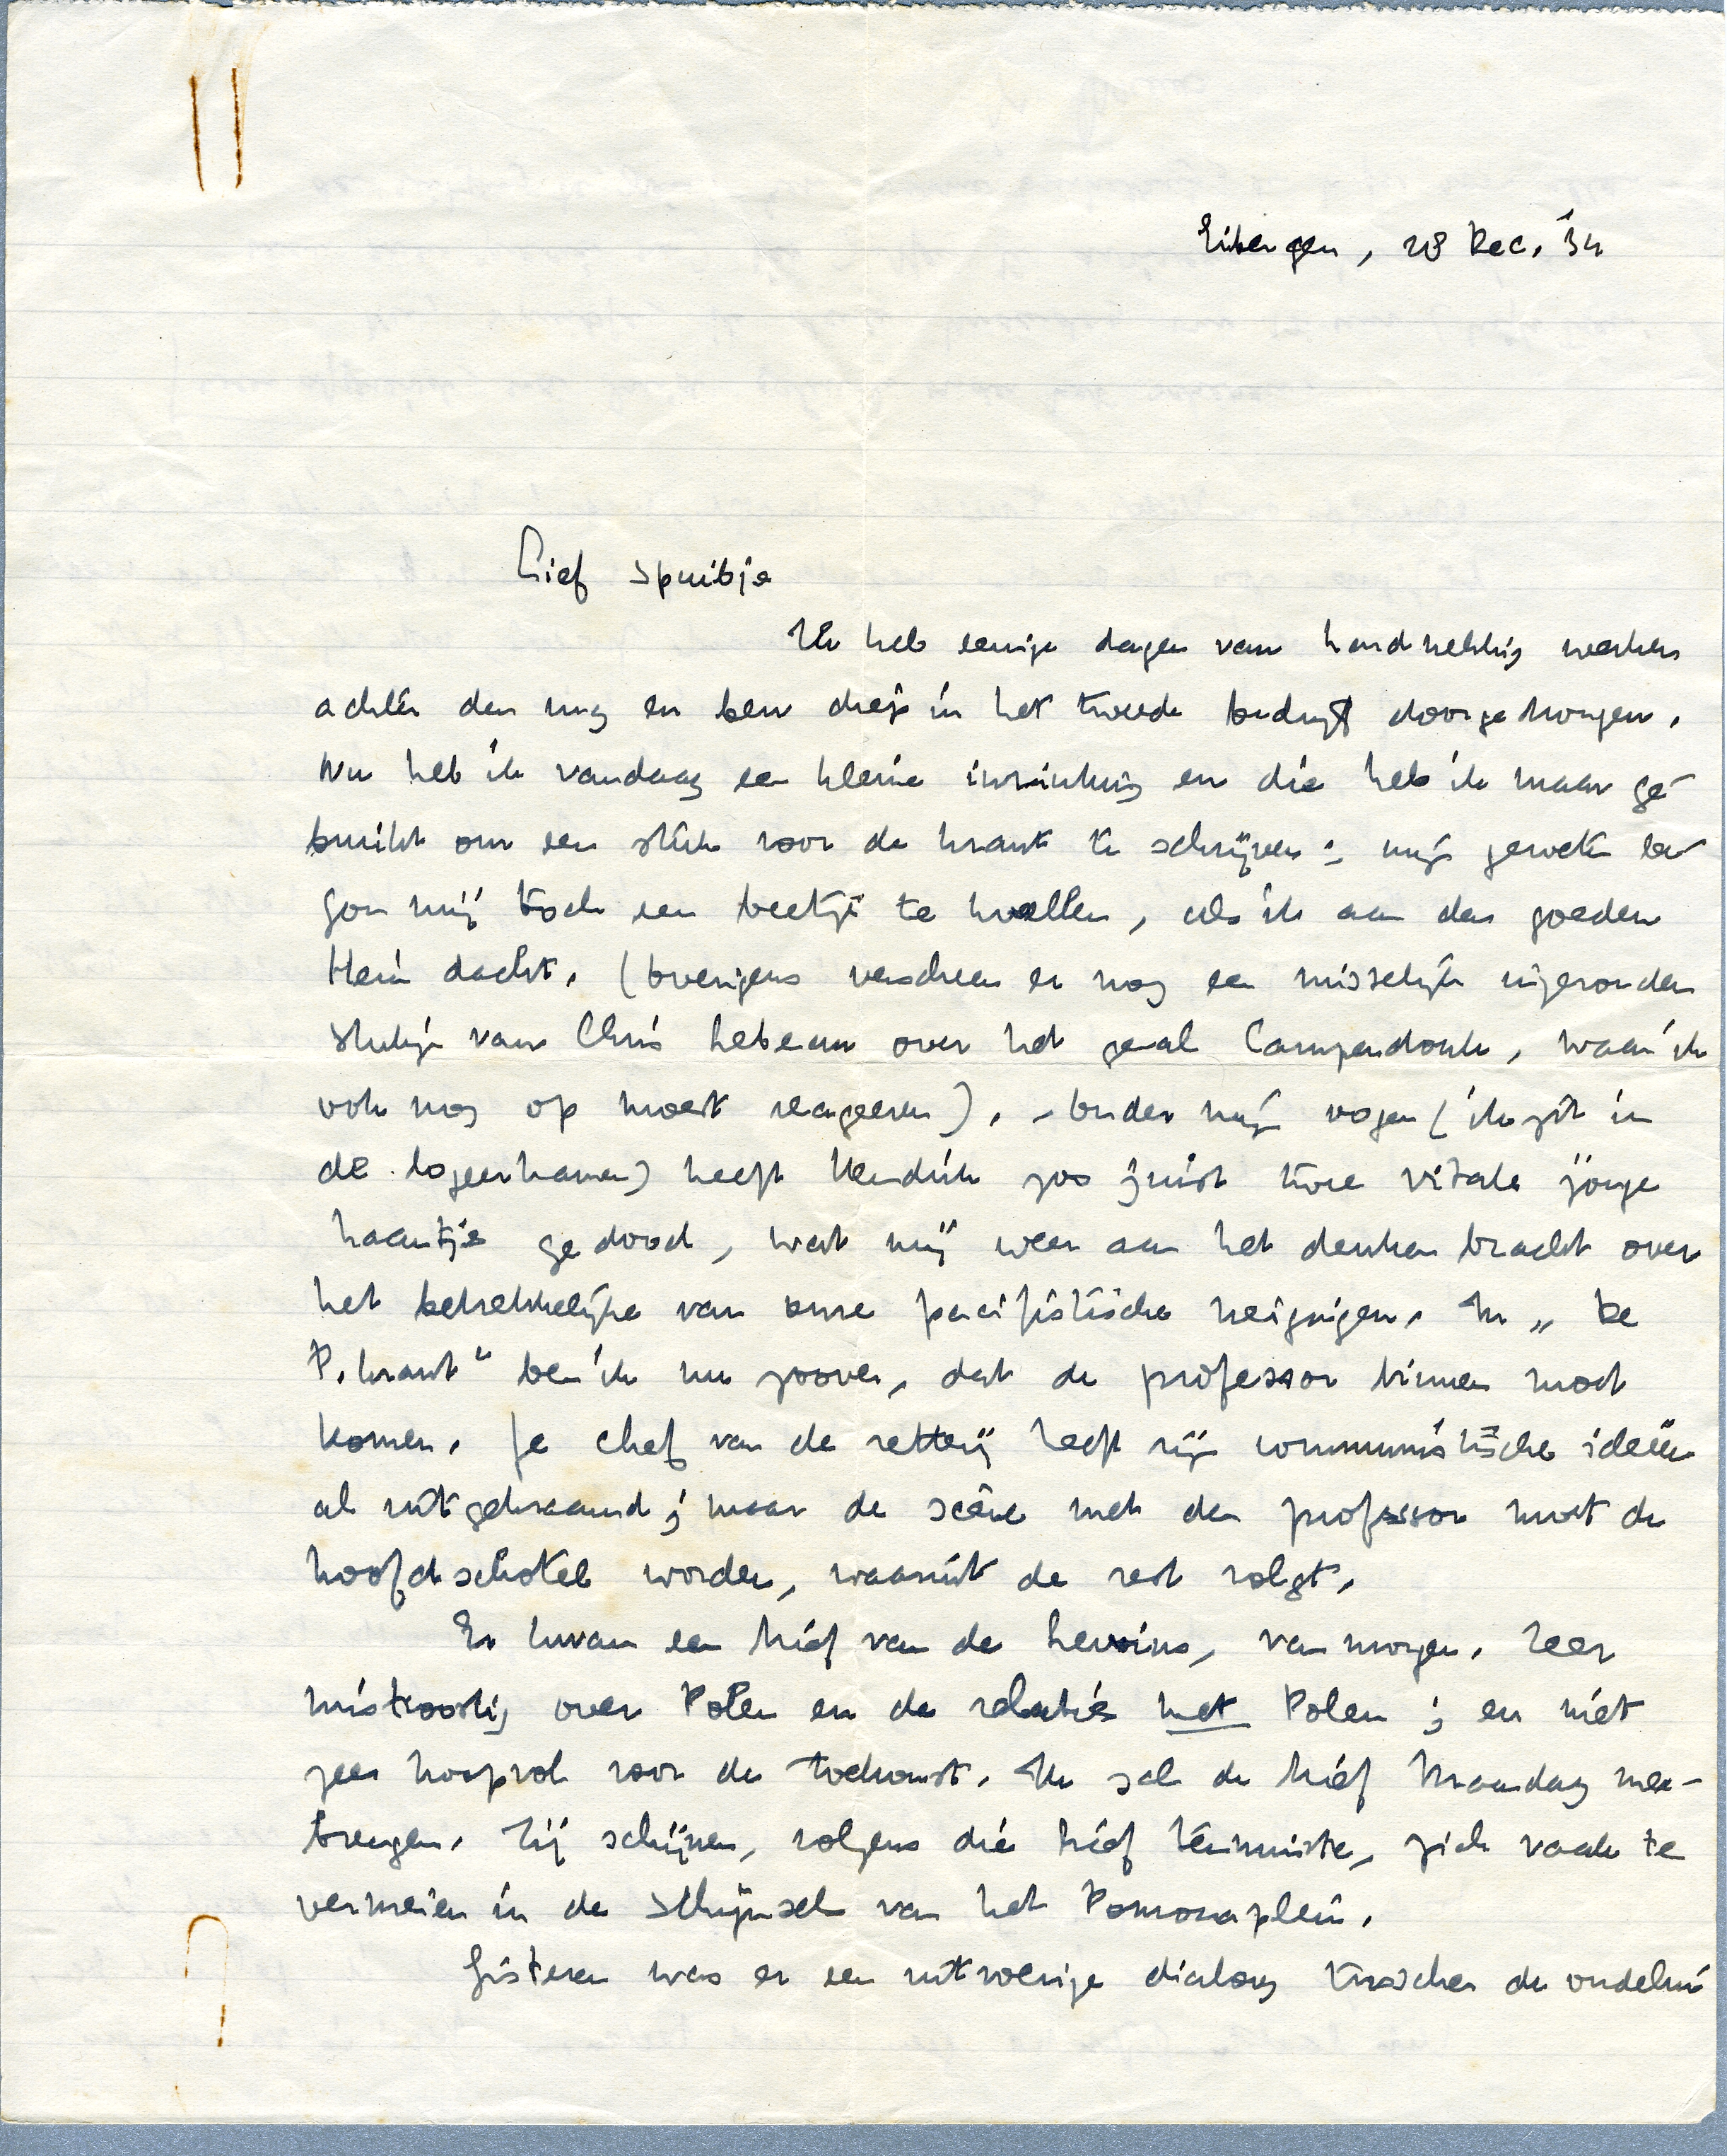 Eibergen, 28 Dec. '34
Lief Spruitje
Ik heb eenige dagen van hardnekkig werken
achter den rug en ben diep in het tweede bedrijf doorgedrongen.
Nu heb ik vandaag een kleine inzinking en die heb ik maar ge-
bruikt om een stuk voor de krant te schrijven; mijn geweten be-
gon mij toch een beetje te kwellen, als ik aan den goeden
Hein dacht. (Overigens verscheen er nog een misselijk ingezonden
stukje van Chris Lebeau over het geval Campendonk, waar ik
ook nog op moest reageeren). - Onder mijn oogen (ik zit in
de logeerkamer) heeft Hendrik zoo juist twee vitale jonge
haantjes gedood, wat mij weer aan het denken bracht over
het betrekkelijke van onze pacifistische neigingen. In „De
P. krant" ben ik nu zoover, dat de professor binnen moet
komen. Je chef van de zetterij heeft zijn communistische ideeën
al uitgekraamd; maar de scène met den professor moet de
hoofdschotel worden, waaruit de rest volgt.
Er kwam een brief van de heroïne, van morgen. Zeer
mistroostig over Polen en de relatie met Polen; en niet
zeer hoopvol voor de toekomst. Ik zal de brief Maandag mee-
brengen. Zij schijnen, volgens die brief tenminste, zich vaak te
vermeien in de schijnsel van het Pomonaplein.
Gisteren was er een uitvoerige dialoog tusschen de oudelui